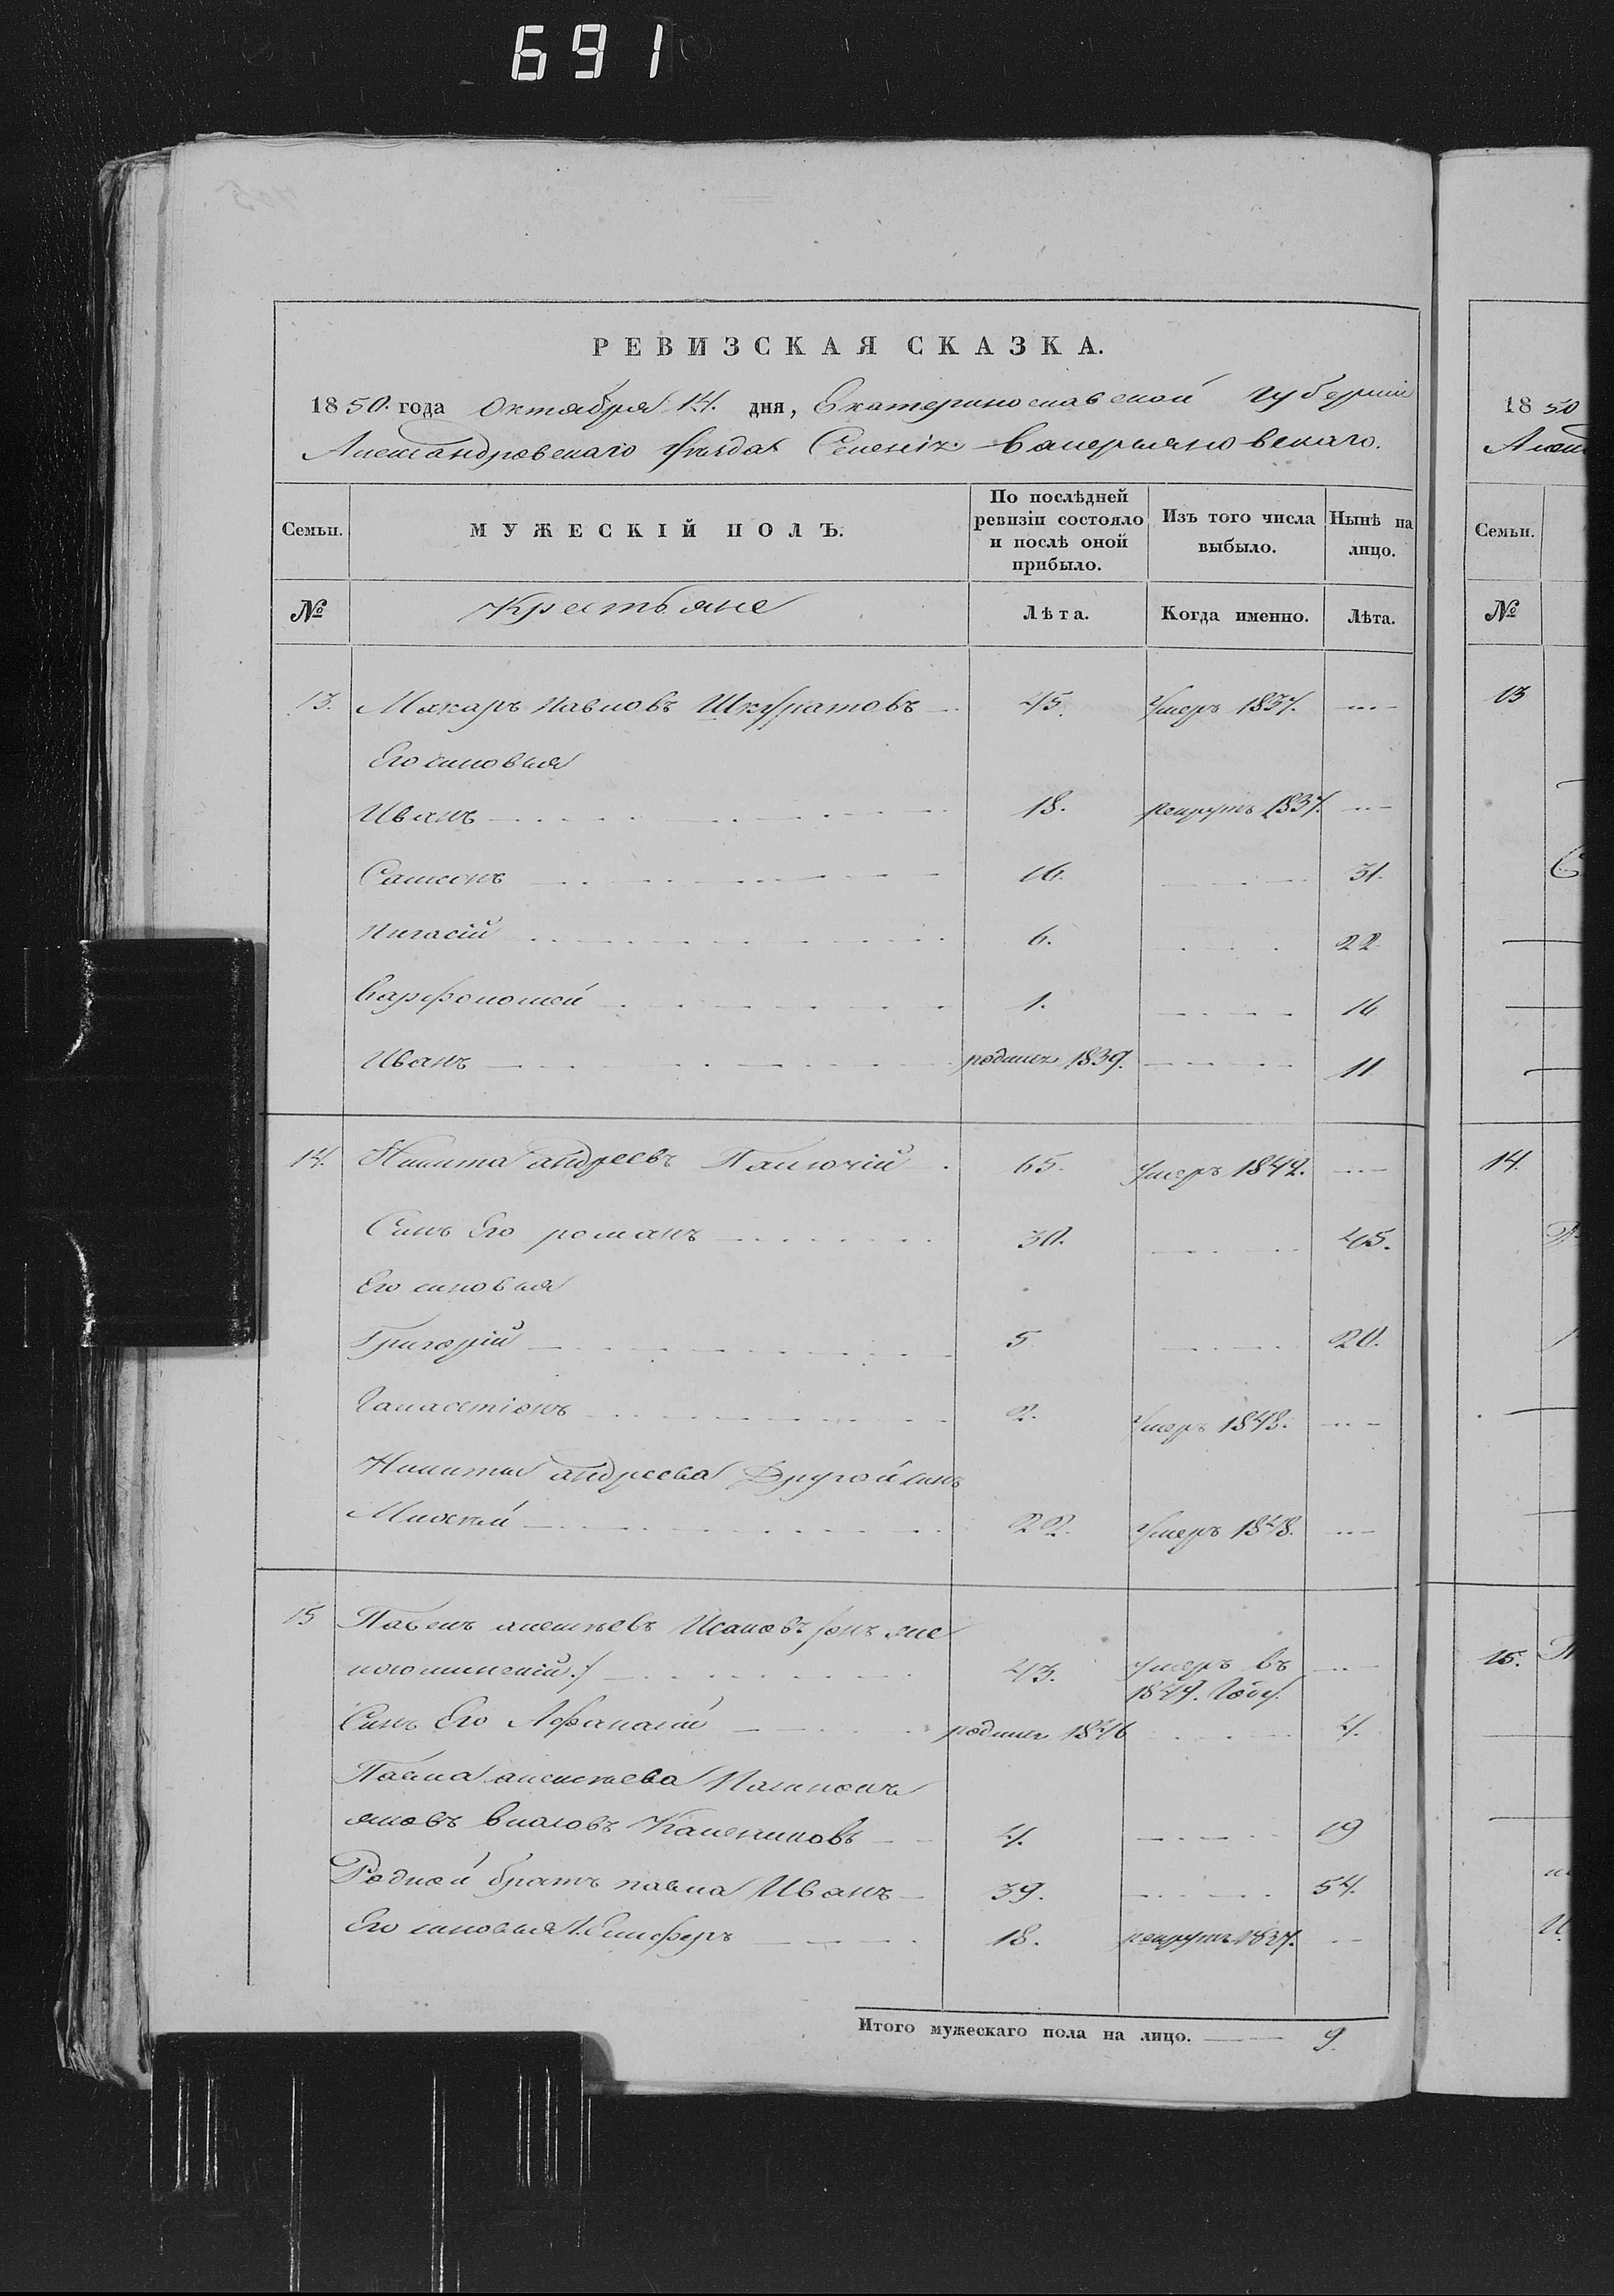 691
РЕВИЗСКАЯ СКАЗКА.
1850. года Октября 14. дня, Екатеринославской губернии
Александровскаго уѣзда Валерьяновскаго.
Семьи. МУЖЕСКІЙ ПОЛЪ. По послѣдней ревизіи состояло и послѣ оной прибыло. Изъ того числа выбыло. Нынѣ на лицо.
№ Крестьяне Лѣта. Когда именно. Лѣта.
13. Макаръ Павловъ Шкуратовъ 45. Умеръ 1837.
Его сыновья
Иванъ 18. рекрутъ 1837.
Самсонъ 16. 31.
Пигасій 6. 22
Варфоломей 1. 16
Иванъ родился 1839. 11
14. Никита андреевъ 65. Умеръ 1842.
Синъ Его романъ 30. 45.
Его синовья
Григорій 5 20.
2. Умеръ 1848.
Никиты андреева Другой синъ
22. Умеръ 1848.
15 Павелъ алексѣевъ Исаковъ онъ же
43. умеръ въ
1849. Году.
Синъ Его Афанасій родился 1846 4.
Павла алексѣева
яковъ власовъ 4. 19
Родной братъ павла Иванъ 39. 54.
Его синовья 1. Елисферъ 18. рекрутъ 1837.
Итого мужескаго пола на лицо. 9.
1850
Семьи.
№
13
14.
15.